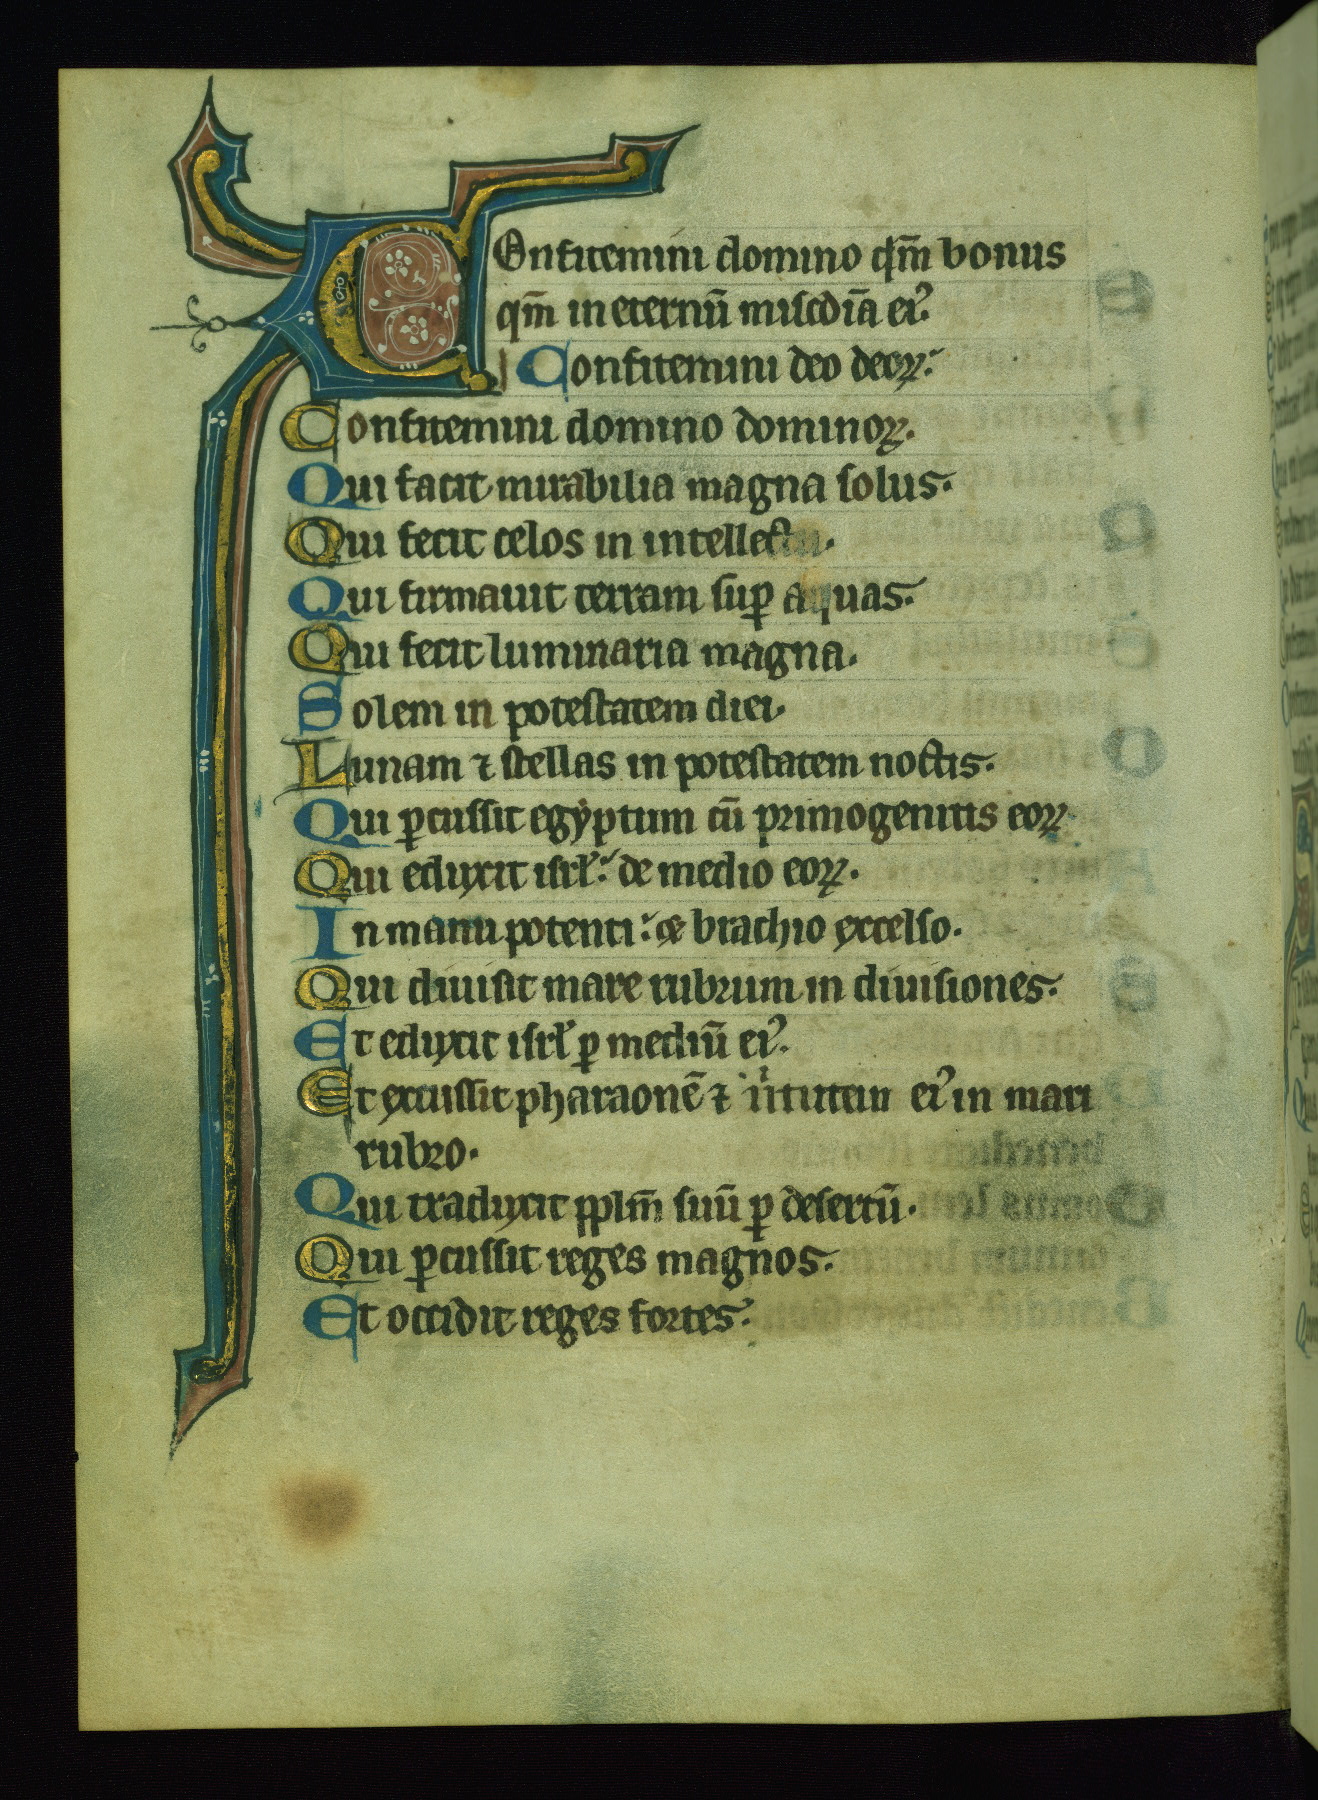 Confitemini domino qm̄ bonus
qm̄ in eternū misc̄dīa ei᾿.
Confitemini deo deoꝝ.
Confitemini domino dominoꝝ.
Qui facit mirabilia magna solus.
Qui fecit celos in intellectu.
Qui firmauit terram suꝑ aquas.
Qui fecit luminaria magna.
Solem in potestatem diei.
Lunam ⁊ stellas in potestatem noctis.
Qui ꝑcussit egyptum cū primogenitis eoꝝ
Qui eduxit isrl̄. de medio eoꝝ.
In manu potenti. et brachio excelso.
Qui diuisit mare rubrum in diuisiones.
Et eduxit isrl̄ ꝑ mediū ei᾿.
Et excussit pharaonē ⁊ uͥtutem ei᾿ in mari
rubro.
Qui traduxit pplm̄ suū ꝑ desertū.
Qui ꝑcussit reges magnos.
Et occidit reges fortes.